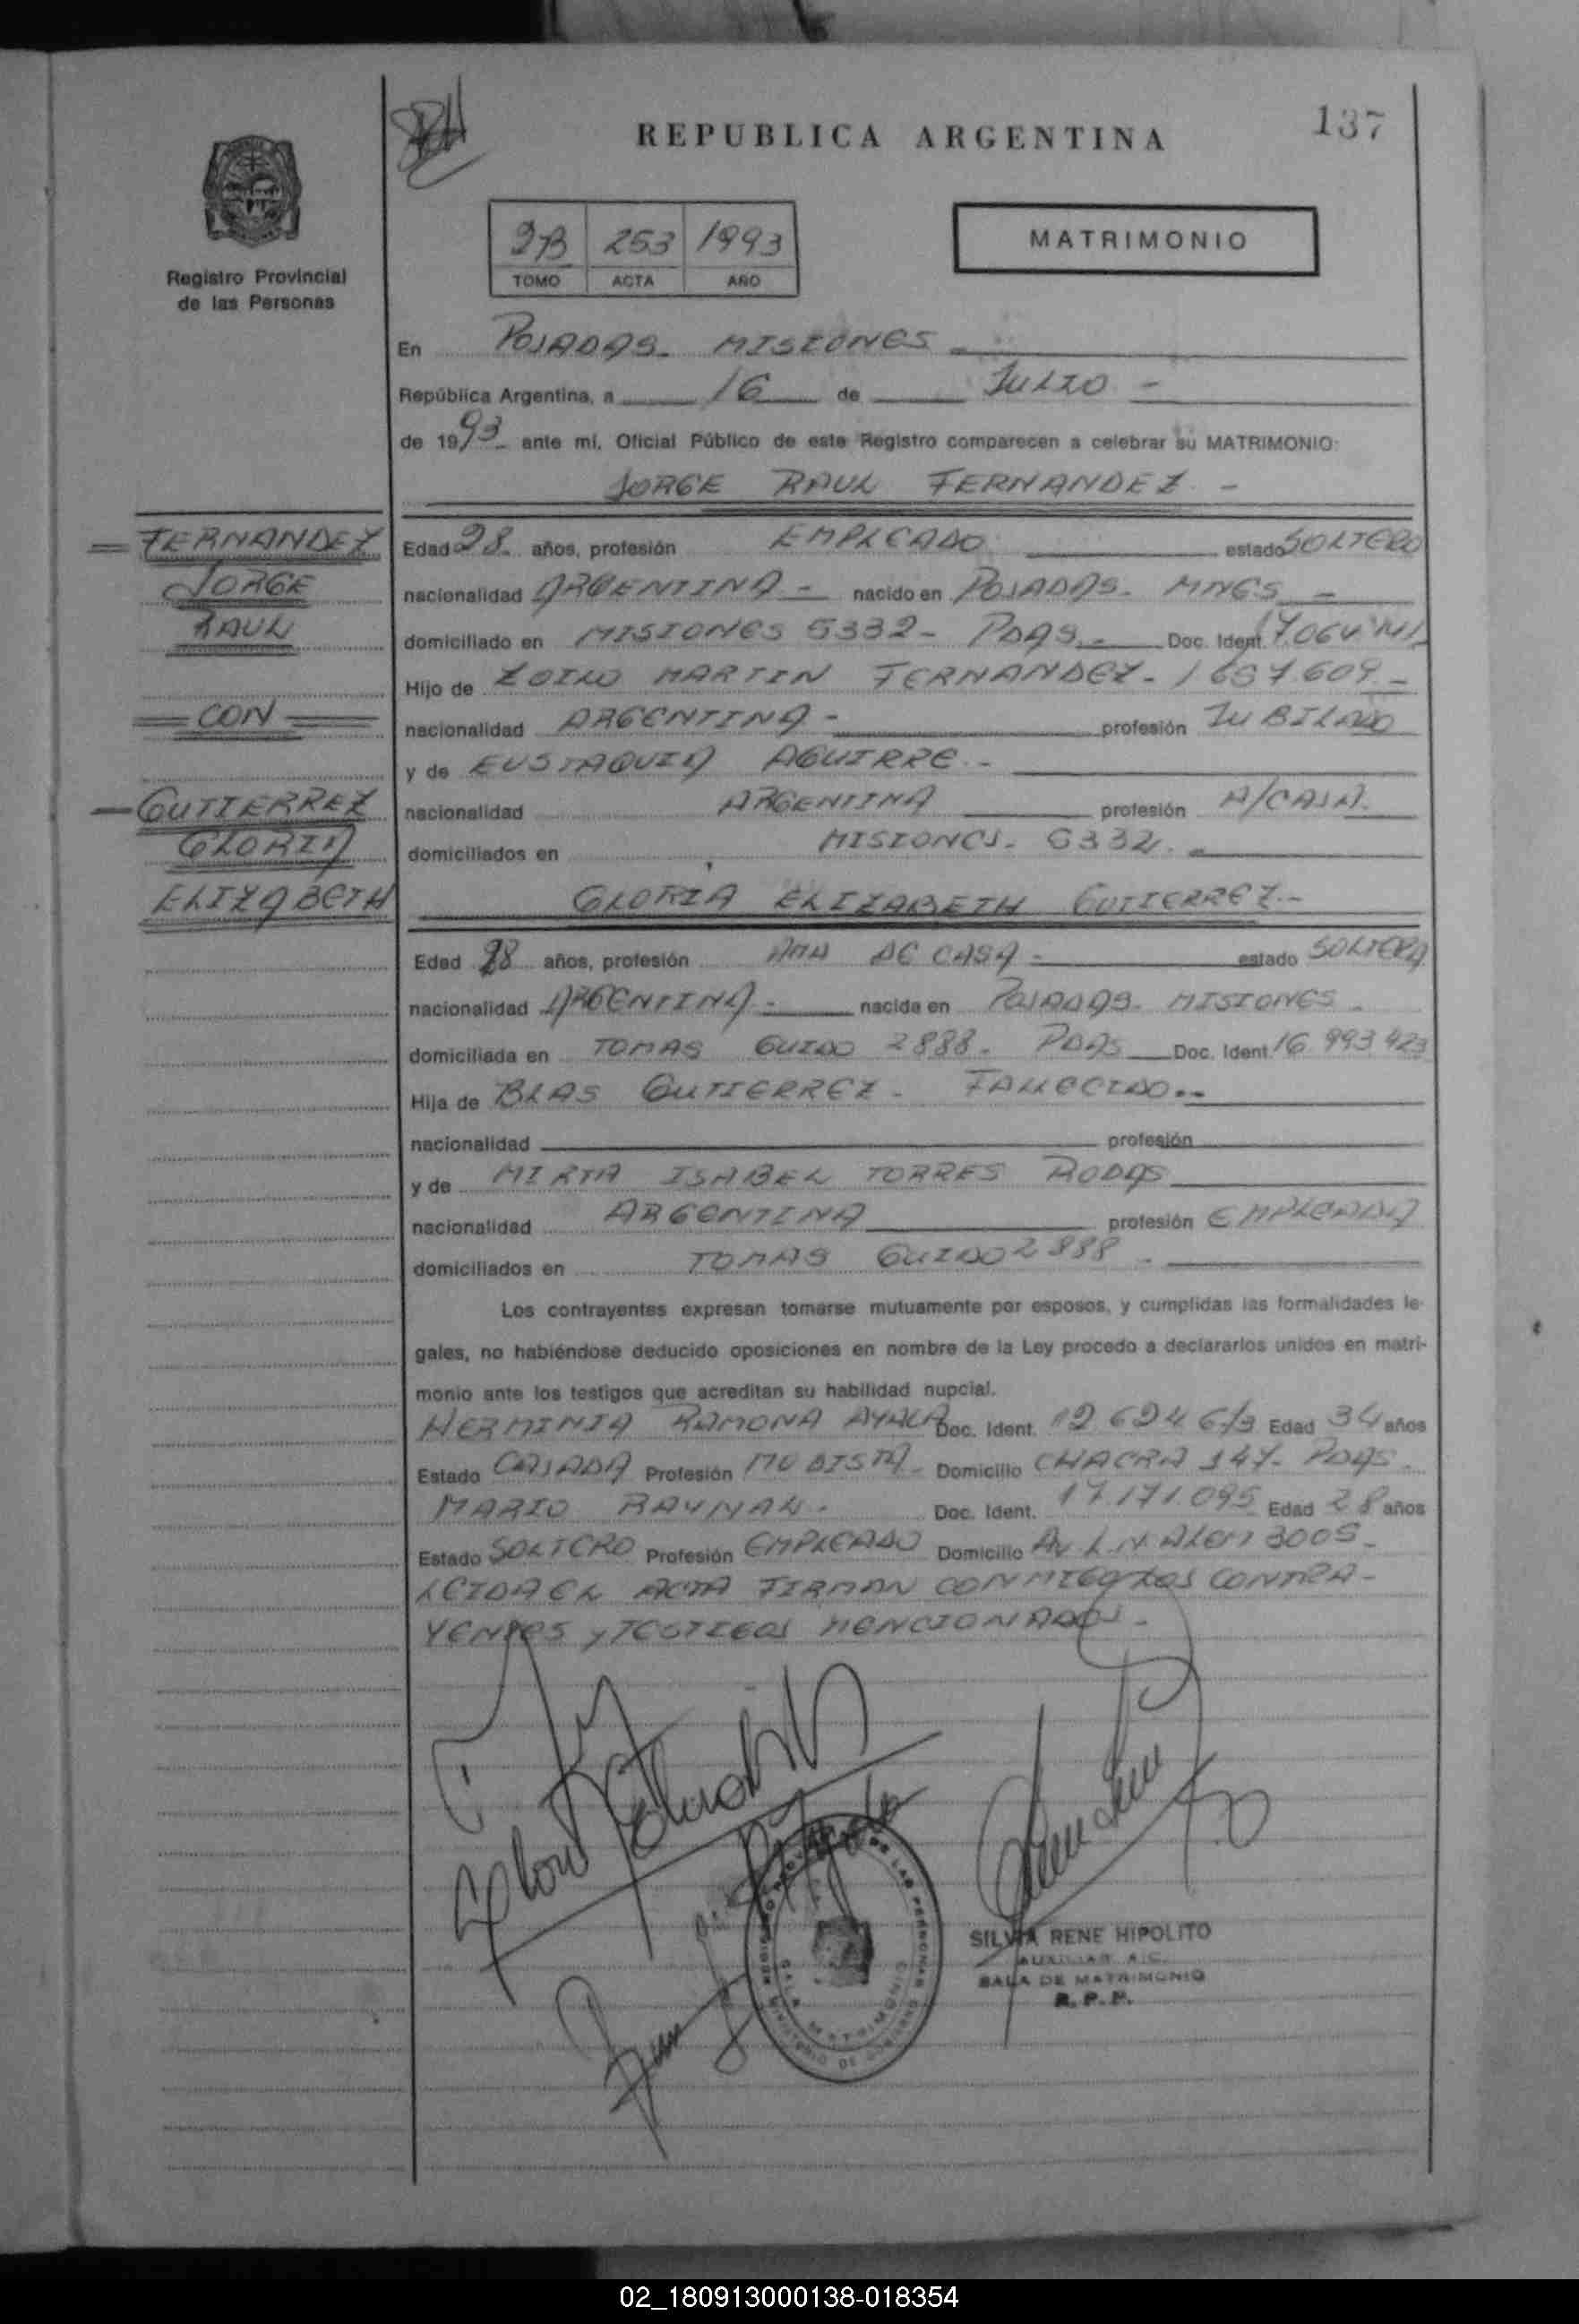 137
REPUBLICA ARGENTINA
Registro Provincial
de las Personas
2B 253 1993
TOMO ACTA AÑO
MATRIMONIO
En POSADAS - MISIONES -
República Argentina, a 16 de JULIO -
de 1993 ante mí, Oficial Público de este Registro comparecen a celebrar su MATRIMONIO:
JORGE RAUL FERNANDEZ -
FERNANDEZ
JORGE
RAUL
CON
GUTIERREZ
GLORIA
ELIZABETH
Edad 28 años, profesión EMPLEADO estado SOLTERO
nacionalidad ARGENTINA - nacido en POSADAS - MNES -
domiciliado en MISIONES 5332 - PDAS - Doc. Ident.
Hijo de ZOILO MARTIN FERNANDEZ - 1657.609 -
nacionalidad ARGENTINA - profesión JUBILADO
y de EUSTAQUIA AGUIRRE -
nacionalidad ARGENTINA profesión A/CASA.
domiciliados en MISIONES - 5332. -
GLORIA ELIZABETH GUTIERREZ -
Edad 28 años, profesión AMA DE CASA - estado SOLTERA
nacionalidad ARGENTINA - nacida en POSADAS - MISIONES -
domiciliada en TOMAS GUIDO 2888 - PDAS Doc. Ident. 16.993 423
Hija de BLAS GUTIERREZ - FALLECIDO. -
nacionalidad profesión
y de MIRTA ISABEL TORRES RODAS
nacionalidad ARGENTINA profesión EMPLEADA
domiciliados en TOMAS GUIDO 2888 -
Los contrayentes expresan tomarse mutuamente por esposos, y cumplidas las formalidades le-
gales, no habiéndose deducido oposiciones en nombre de la Ley procedo a declararlos unidos en matri-
monio ante los testigos que acreditan su habilidad nupcial.
HERMINIA RAMONA AYALA Doc. Ident. Edad 34 años
Estado CASADA Profesión MODISTA - Domicilio CHACRA 147 - PDAS -
MARIO Doc. Ident. 17.171.095 Edad 28 años
Estado SOLTERO Profesión EMPLEADO Domicilio AV L.N ALEM 3005 -
LEIDA EL ACTA FIRMAN CONMIGO LOS CONTRA-
YENTES y TESTIGOS MENCIONADOS -
SILVIA RENE HIPOLITO
AUXILIAR A.C.
SALA DE MATRIMONIO
R. P. P.
02_180913000138-018354